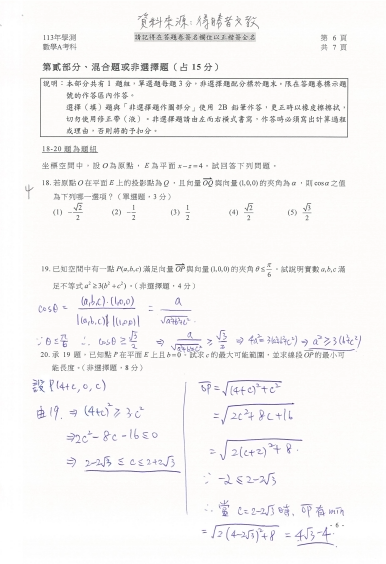 資料來源:得勝者文教
113年學測
數學A考科
請記得在答題卷簽名欄位以正楷簽全名
第 6 頁
共 7 頁
第貳部分、混合題或非選擇題(占15分)
說明:本部分共有 1 題組,單選題每題 3 分,非選擇題配分標於題末。限在答題卷標示題號的作答區內作答。
選擇(填)題與「非選擇題作圖部分」使用 2B 鉛筆作答,更正時以橡皮擦擦拭,切勿使用修正帶(液)。非選擇題請由左而右橫式書寫,作答時必須寫出計算過程或理由,否則將酌予扣分。
18-20 題為題組
坐標空間中,設 O 為原點,E 為平面 x-z=4,試回答下列問題。
4
18. 若原點 O 在平面 E 上的投影點為 Q,且向量 OQ 與向量 (1,0,0) 的夾角為 α,則 cosα 之值
為下列哪一選項?(單選題,3 分)
(1) -√2/2 (2) -1/2 (3) 1/2 (4) √2/2 (5) √3/2
19. 已知空間中有一點 P(a,b,c) 滿足向量 OP 與向量 (1,0,0) 的夾角 θ≤π/6,試說明實數 a,b,c 滿
足不等式 a²≥3(b²+c²)。(非選擇題,4 分)
cosθ = (a,b,c)·(1,0,0) / |(a,b,c)||(1,0,0)| = a/√(a²+b²+c²)
∵θ≤π/6 ∴ cosθ≥√3/2 ⇒ a/√(a²+b²+c²) ≥ √3/2 ⇒ 4a²≥3(a²+b²+c²) ⇒ a²≥3(b²+c²)
20. 承 19 題,已知點 P 在平面 E 上且 b=0,試求 c 的最大可能範圍,並求線段 OP 的最小可
能長度。(非選擇題,8 分)
設 P(4+c, 0, c)
由19. ⇒ (4+c)² ≥ 3c²
⇒2c²-8c-16≤0
⇒ 2-2√3 ≤ c ≤ 2+2√3
OP = √((4+c)²+c²)
= √(2c²+8c+16)
= √(2(c+2)²+8)
∵ -2 ≤ 2-2√3
∴ 當 c=2-2√3 時, OP 有 min
= √(2(4-2√3)²+8) = 4√3-4
- 6 -